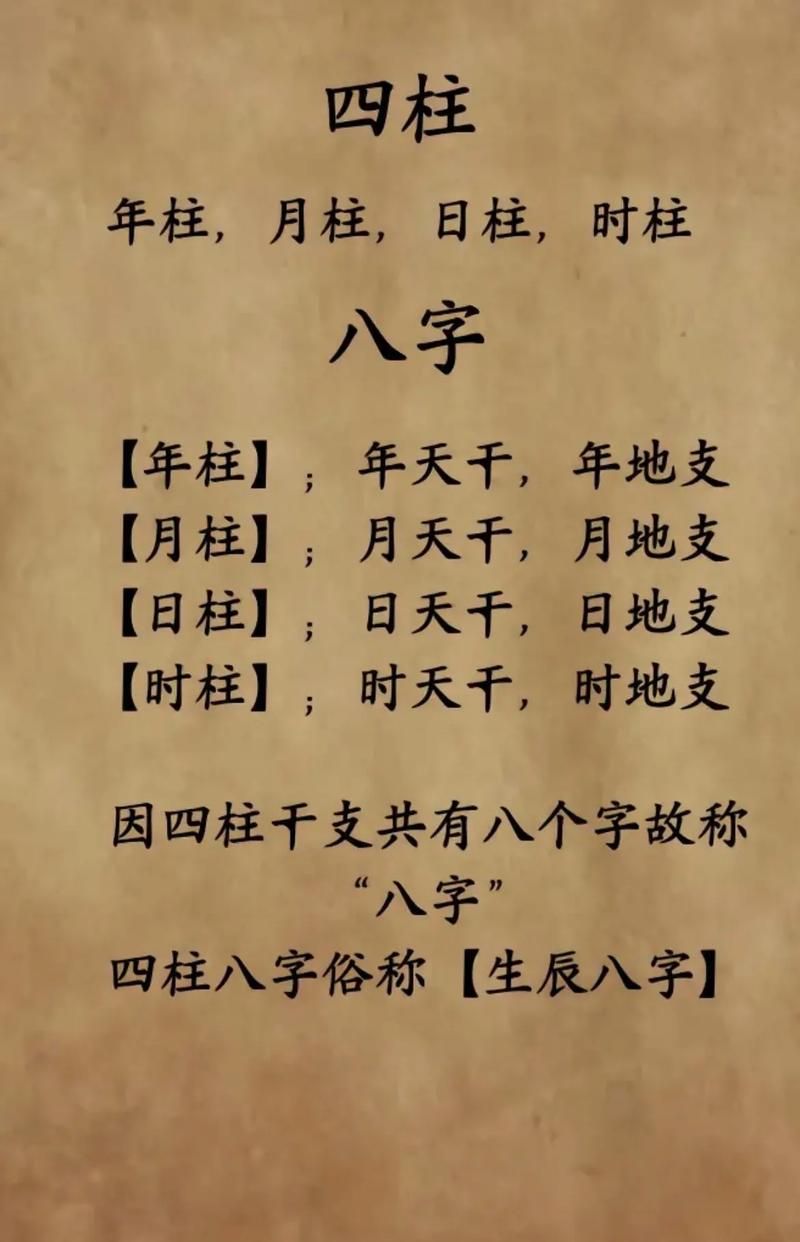 四柱
年柱，月柱，日柱，时柱
八字
【年柱】；年天干，年地支
【月柱】；月天干，月地支
【日柱】；日天干，日地支
【时柱】；时天干，时地支
因四柱干支共有八个字故称
“八字”
四柱八字俗称【生辰八字】